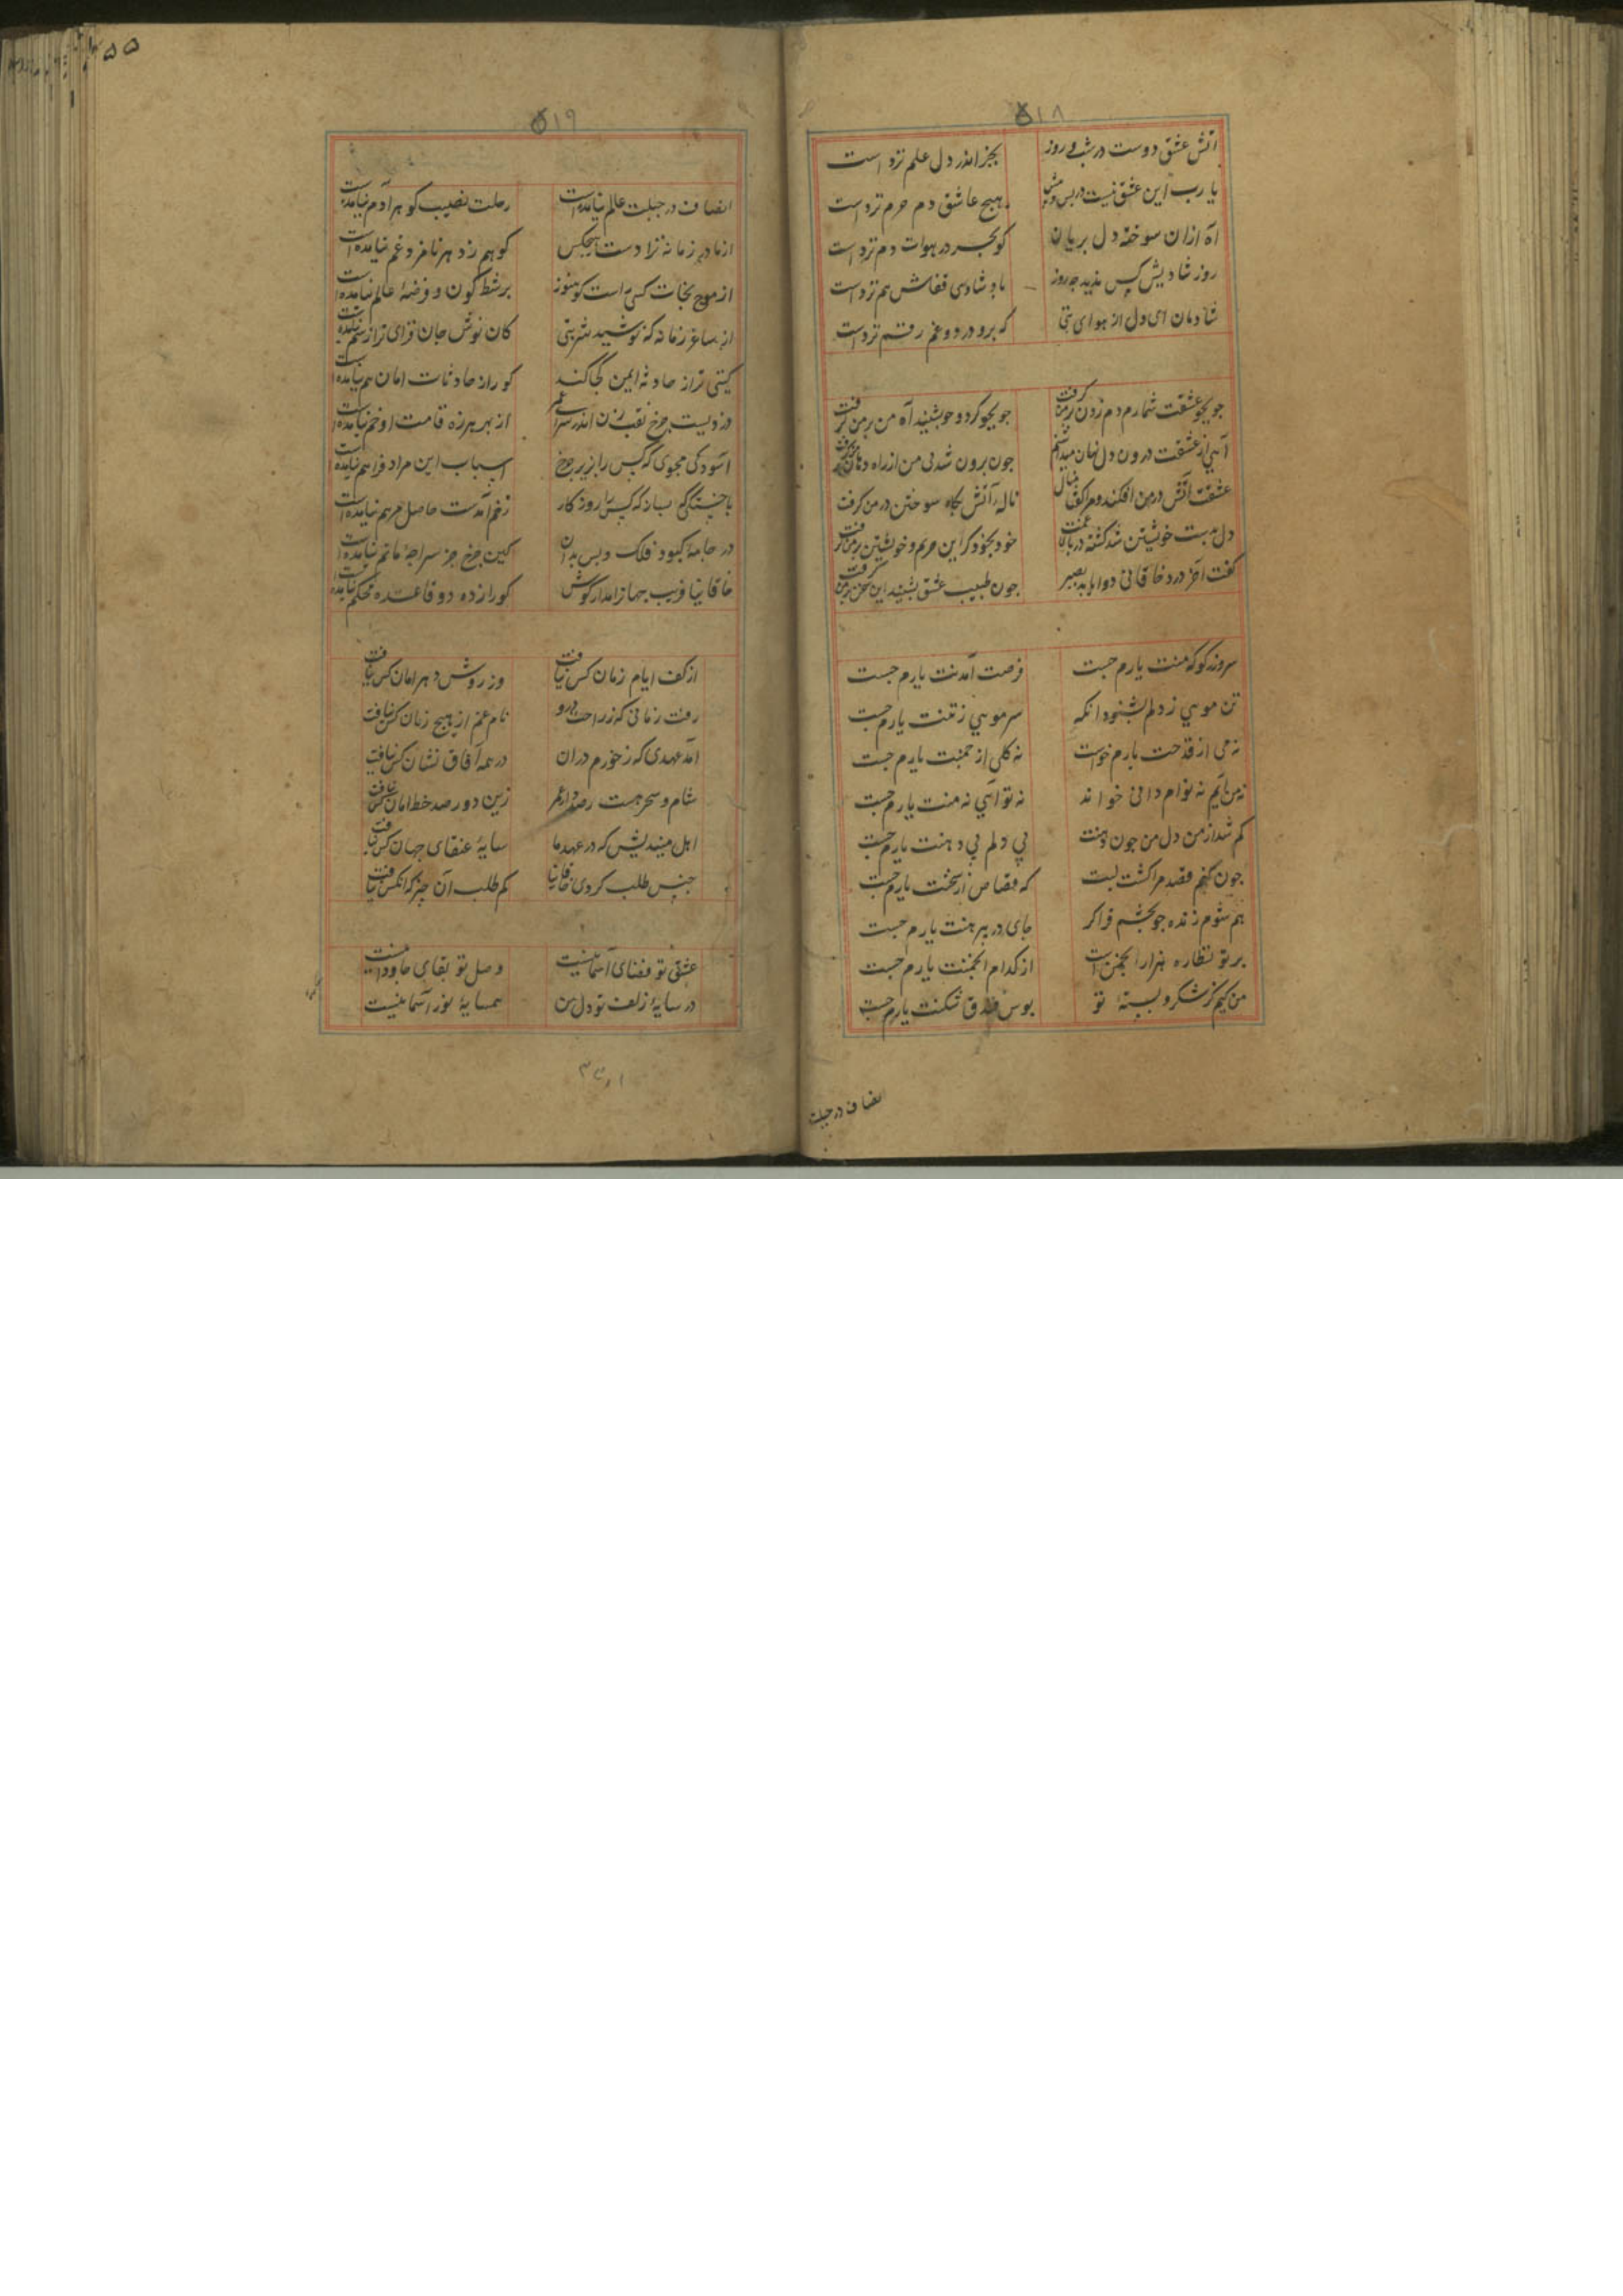 ۵۱۸
آتش عشق دوست در شب و روز بجز اندر دلم علم نزد است
یا رب این عشق نیست در پس و پیش هیچ عاشق دم حرم نزد است
آه ازان سوخته دل بریان کو بجز در هوات دم نزد است
روز شادیش کس ندید چه روز باد شادی قفاش هم نزد است
شادمان ای دل از هوای بتی که برو درد و غم رقم نزد است
جو بجو عشقت شمار دم زدن بر من گرفت جو بجو گرد و جو بشنید آه من بر من گرفت
از عشقت درون دل نهان میداشتم جون برون شد بی من از راه دهان
عشقت آتش در من افکند و مرا گفتا منال ناله آتش بگاه سوختن در من گرفت
دل بدست خویشتن شد کشته در پای غمت خود بخود کرد این حریم و خویشتن بر من گرفت
گفت آخر درد خاقانی دوا یابد بصبر جون طبیب عشق بشنید این سخن بر من گرفت
سر و زر کو که منت یارم جست فرصت آمدنت یارم جست
تن مویی ز دلم بشنود آنکه سر مویی ز تنت یارم جست
نه می از قدحت یارم خواست نه گلی از چمنت یارم جست
نه من آیم نه توام دانی خواند نه تو آیی نه منت یارم جست
گم شد از من دل من جون دهنت پی دلم بی دهنت یارم جست
جون کنم قصد مرا کشت لبت که قصاص از سخنت یارم جست
هم شوم زنده جو بخشم فراکر جای در پیرهنت یارم جست
بر تو نظاره هزار انجمن است از کدام انجمنت یارم جست
من کیم کز شکر و پسته تو بوس فندق شکنت یارم جست
انصاف در جبلت
۵۱۹
انصاف در جبلت عالم نیامده است رحلت نصیب گوهر آدم نیامده است
از مادر زمانه نزادست هیچکس کو هم ز دهر نامزد غم نیامده است
از موج نجات کسی است کو هنوز بر شط کون و فرضه عالم نیامده است
از ساغر زمانه که نوشید شربتی کان نوش جان گزای تر از سم نیامده است
گیتی ترا ز حادثه ایمن کجا کند کورا ز حادثات امان هم نیامده است
دزدیست چرخ نقب زن اندر سرای عمر از بهر هرزه قامت او خم نیامده است
آسودگی مجوی که کس را بزیر چرخ اسباب این مراد فراهم نیامده است
با خستگی بساز که کس را ز روزگار زخم آمدست حاصل مرهم نیامده است
در جامه کبود فلک و بس بدان کین چرخ جز سراچه ماتم نیامده است
خاقانیا فریب جهان را مدار گوش کورا ز ده دو قاعده محکم نیامده است
از کف ایام زمان کس نیافت وز روش دهر امان کس نیافت
رفت زمانی که ز راحت درو نام غم از هیچ زمان کس نیافت
آمد عهدی که ز خرم دران در همه آفاق نشان کس نیافت
شام و سحر هست رصددار عمر زین دو رصد خط امان کس نیافت
اهل میندیش که در عهد ما سایه عنقای جهان کس نیافت
جنس طلب کردی خاقانیا کم طلب آن چیز که آنکس نیافت
عشق تو قضای آسمانیست وصل تو بقای جاودانیست
در سایه زلف تو دل من همسایه نور آسمانیست